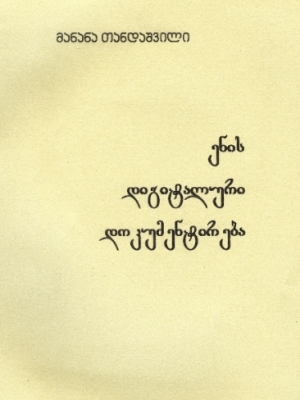 მანანა თანდაშვილი
ენის
დიგიტალური
დოკუმენტირება